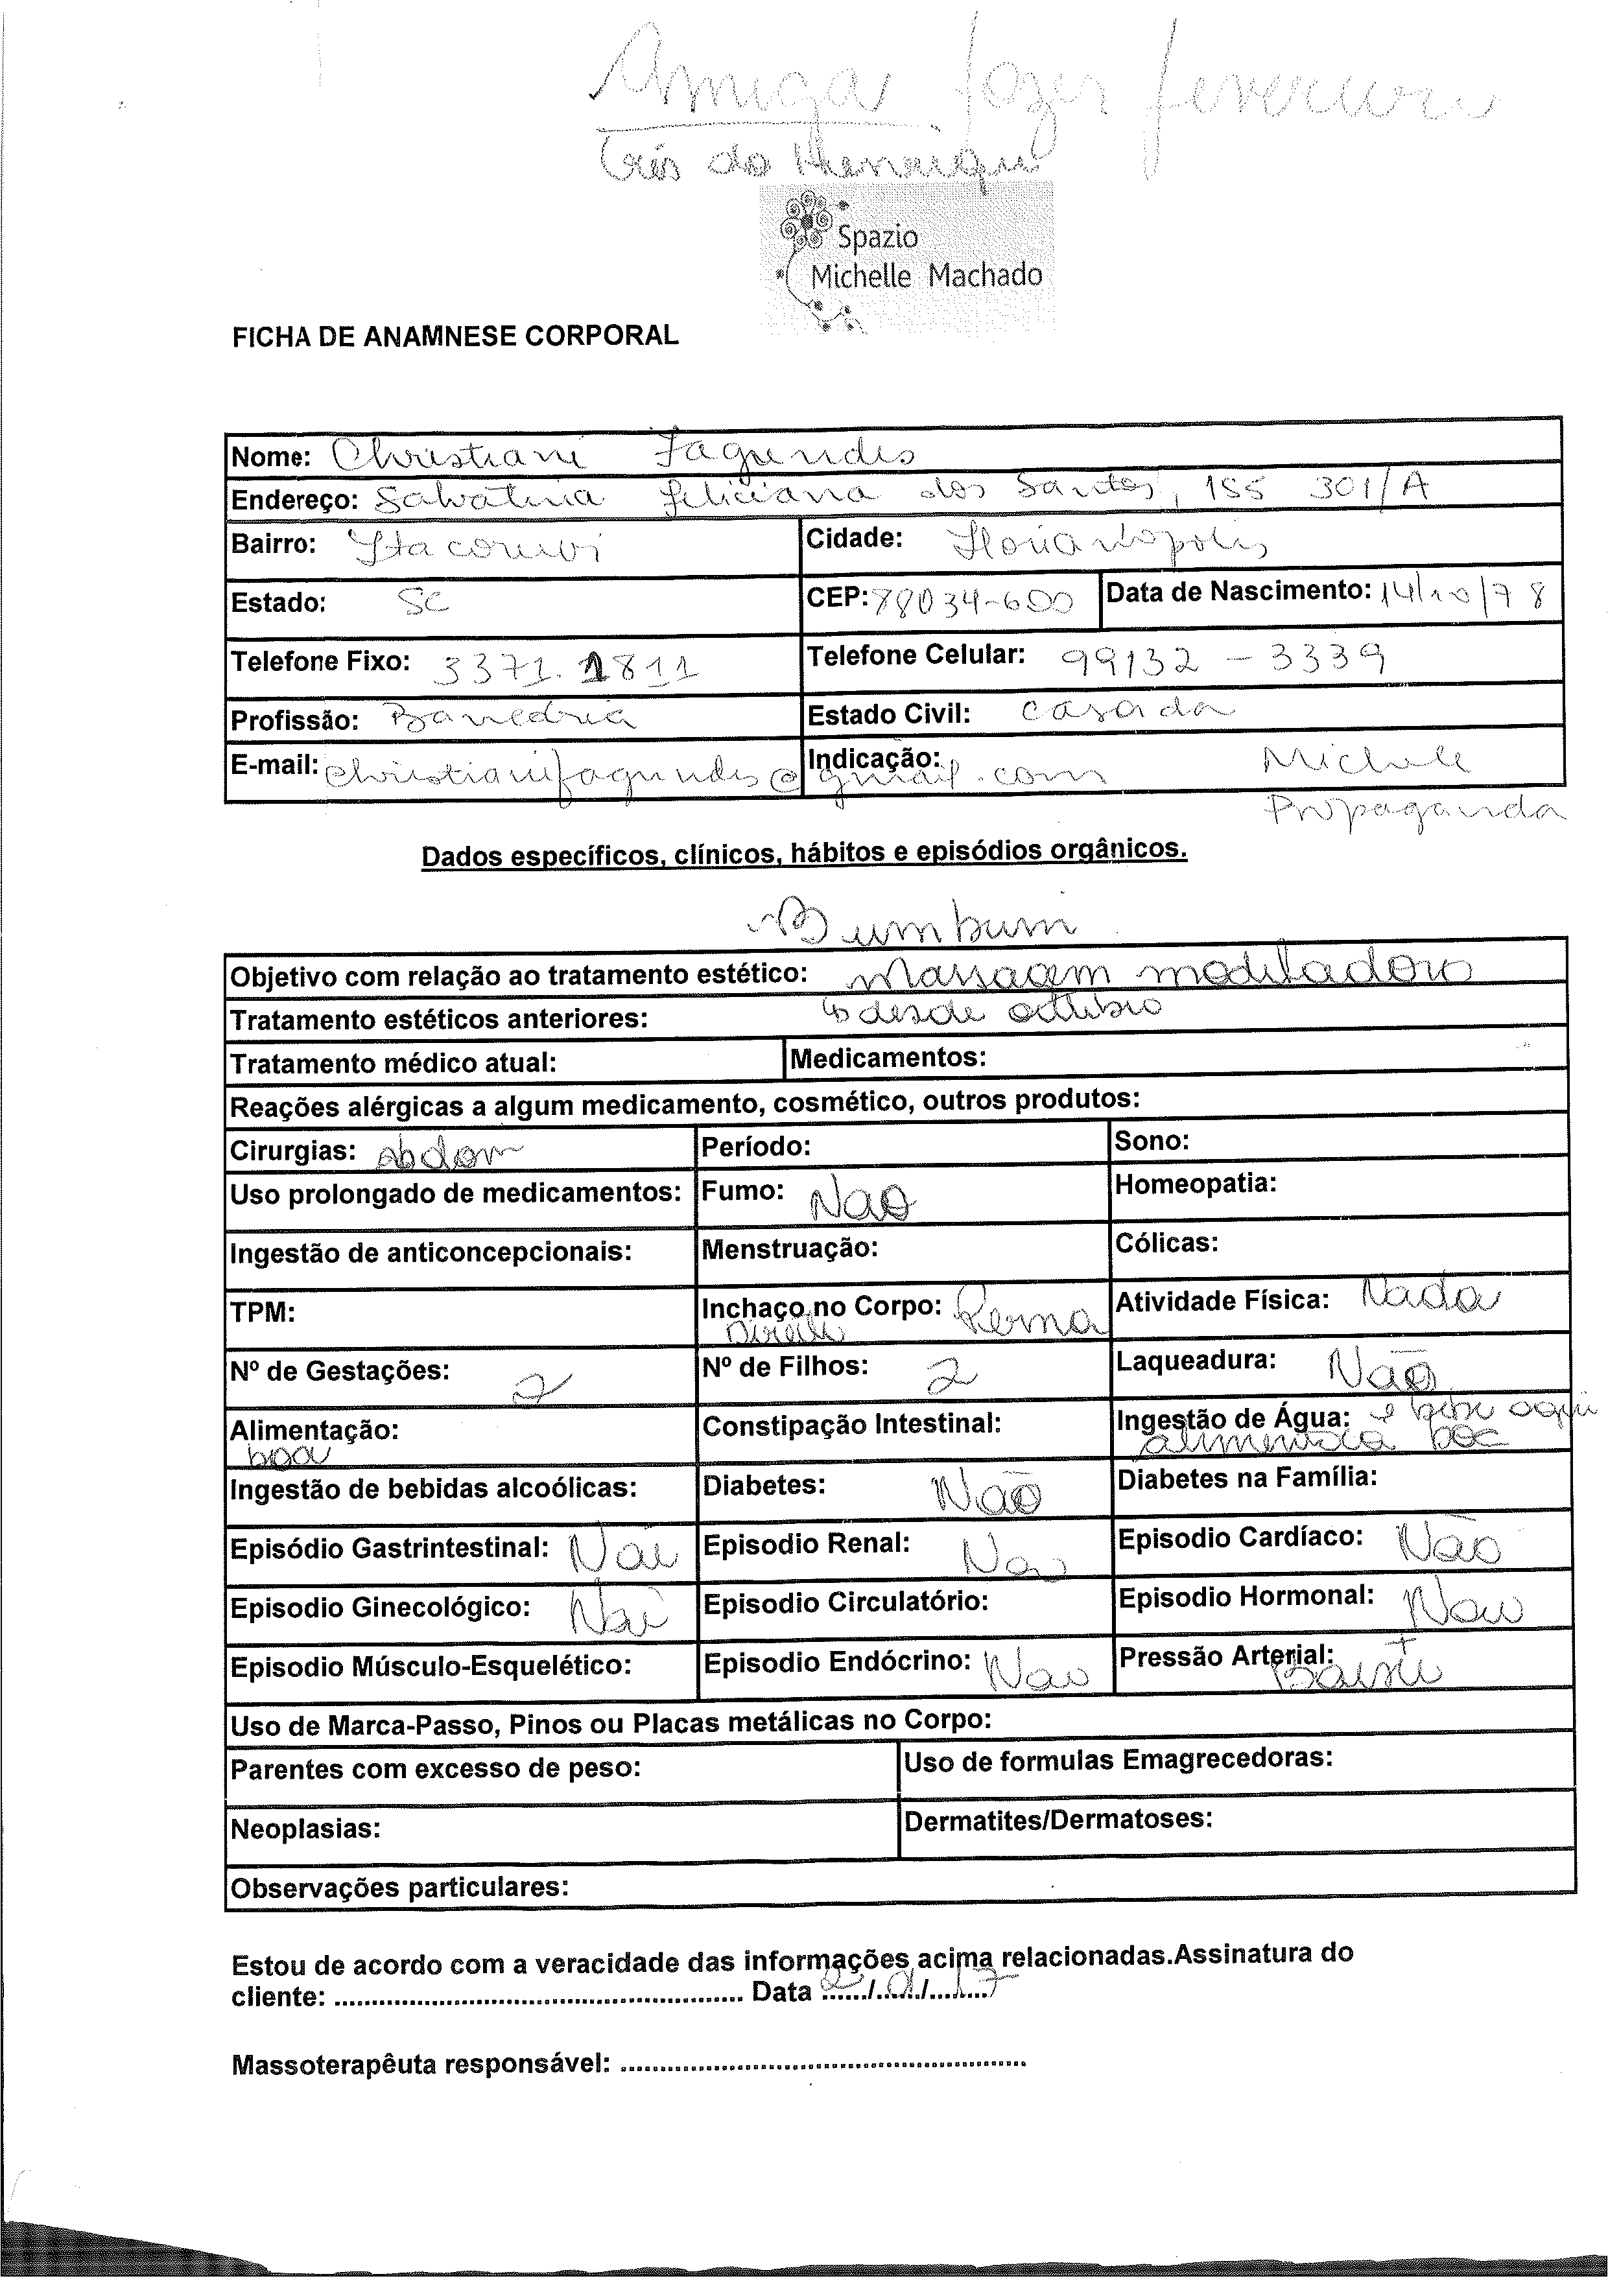 Amiga fazer fevereiro
do Henrique
Spazio
Michelle Machado
FICHA DE ANAMNESE CORPORAL
Nome: Christiani Fagundes
Endereço: Salvatina Feliciana dos Santos, 155 301/A
Bairro: Itacorubi Cidade: Florianópolis
Estado: SC CEP: 88034-600 Data de Nascimento: 14/10/78
Telefone Fixo: 3371.1811 Telefone Celular: 99132-3339
Profissão: Bancária Estado Civil: casada
E-mail: christianifagundes@gmail.com Indicação: Michele
Propaganda
Dados específicos, clínicos, hábitos e episódios orgânicos.
Bumbum
Objetivo com relação ao tratamento estético: Massagem modeladora
Tratamento estéticos anteriores: desde outubro
Tratamento médico atual: Medicamentos:
Reações alérgicas a algum medicamento, cosmético, outros produtos:
Cirurgias: abdom Período: Sono:
Uso prolongado de medicamentos: Fumo: Nao Homeopatia:
Ingestão de anticoncepcionais: Menstruação: Cólicas:
TPM: Inchaço no Corpo: Perna Atividade Física: Nada
Direita
Nº de Gestações: 2 Nº de Filhos: 2 Laqueadura: Não
Alimentação: Constipação Intestinal: Ingestão de Água: e bebe aqui
boa alimentícia boa
Ingestão de bebidas alcoólicas: Diabetes: Não Diabetes na Família:
Episódio Gastrintestinal: Não Episodio Renal: Nao Episodio Cardíaco: Não
Episodio Ginecológico: Não Episodio Circulatório: Episodio Hormonal: Nao
Episodio Músculo-Esquelético: Episodio Endócrino: Nao Pressão Arterial: + Baixa
Uso de Marca-Passo, Pinos ou Placas metálicas no Corpo:
Parentes com excesso de peso: Uso de formulas Emagrecedoras:
Neoplasias: Dermatites/Dermatoses:
Observações particulares:
Estou de acordo com a veracidade das informações acima relacionadas.Assinatura do
cliente: .................................................. Data 2/01/17
Massoterapêuta responsável: ..................................................